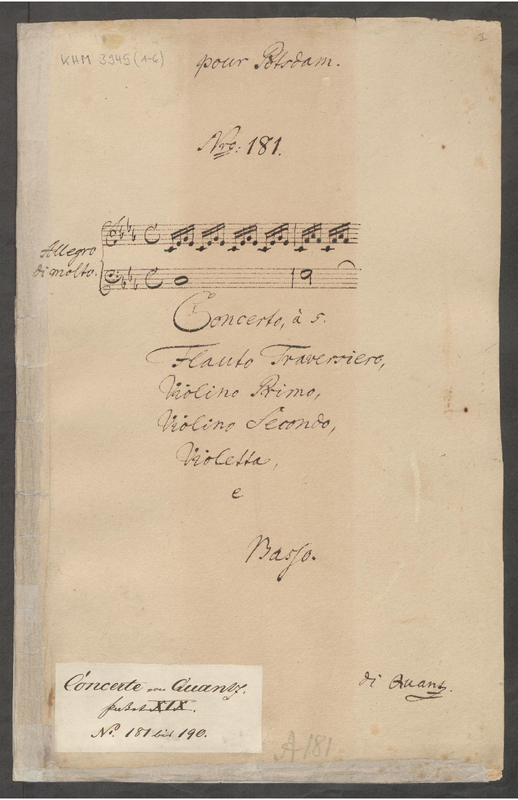 1
KHM 3945 (1-6)
pour Potsdam.
Nro: 181.
Allegro
di molto.
Concerto, à 5.
Flauto Traversiero,
Violino Primo,
Violino Secondo,
Violetta,
e
Basso.
di Quanz.
Concerte von Quantz.
XIX.
No. 181 bis 190.
A 181